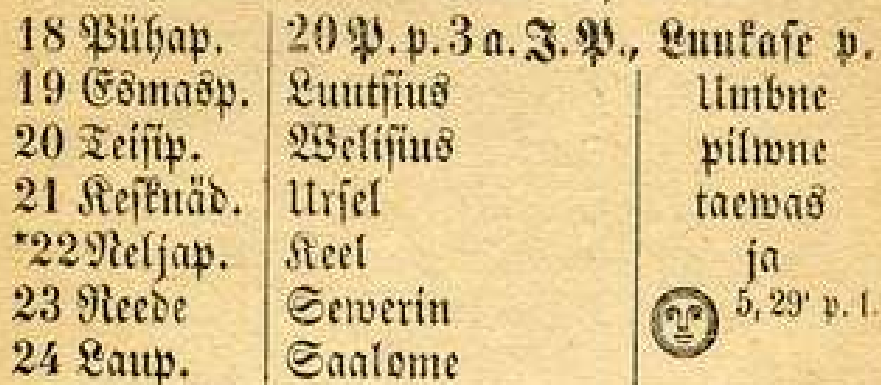 18 Pühap. 20 P. p. 3 a. J. P., Luukase p.
19 Esmasp. Luutsius Umbne
20 Teisip. Welisius pilwne
21 Kesknäd. Ursel taewas
*22 Neljap. Keel ja
23 Reede Sewerin 5, 29' p. l.
24 Laup. Saalome